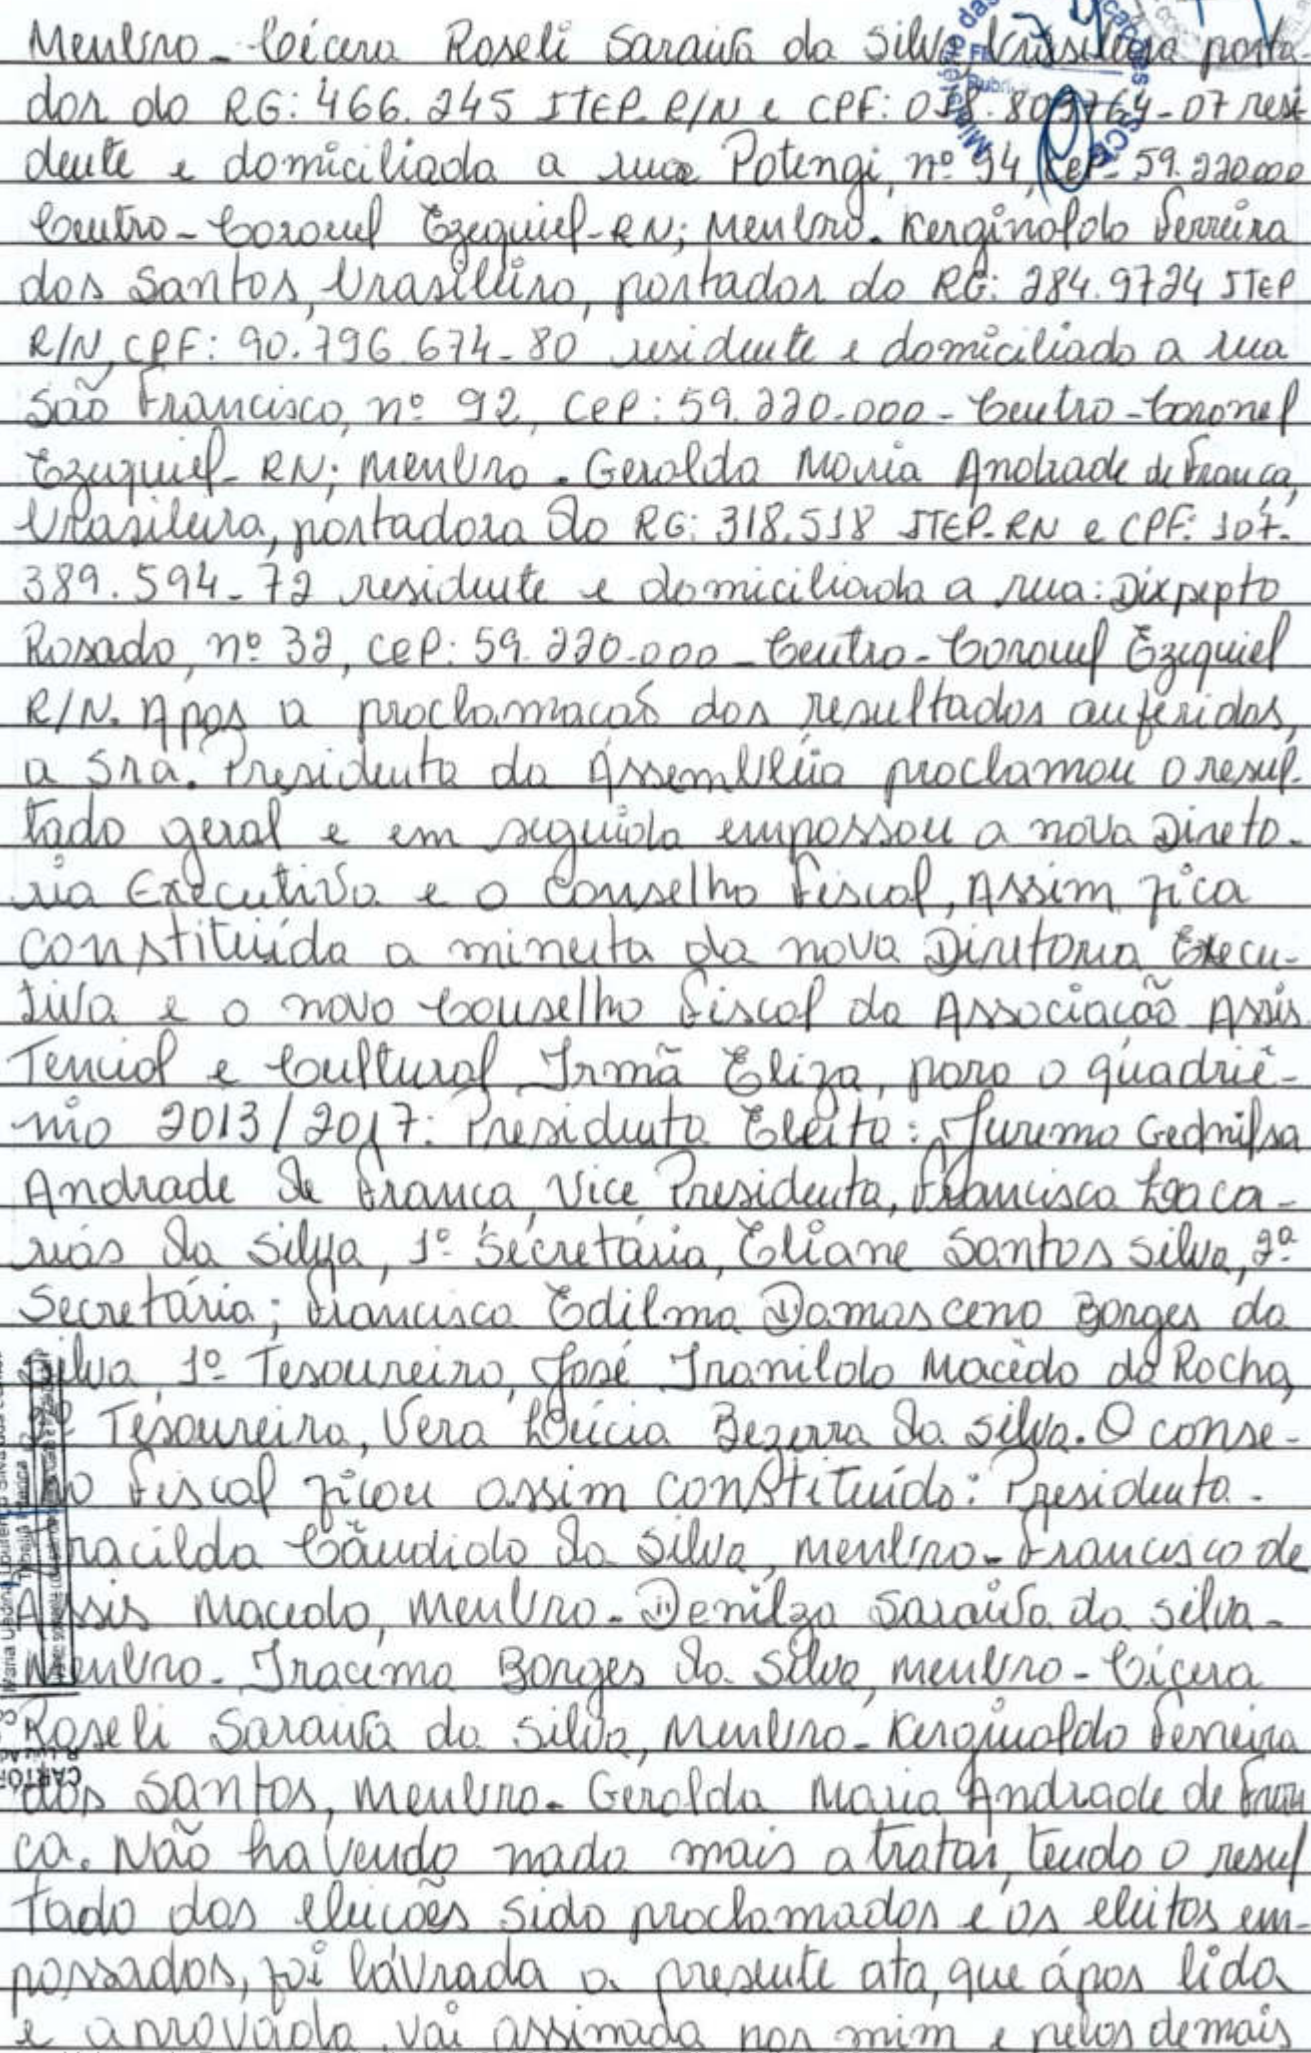 Membro - Cícera Roseli Saraiva da Silva, brasileira porta-
dor do RG: 466.245 ITEP. R/N e CPF: 018.809764-07 resi
dente e domiciliada a rua Potengi, nº 94, CeP- 59.220.000
Centro - Coronel Ezequiel-RN; Membro. Kerginaldo Ferreira
dos Santos, brasileiro, portador do RG: 284.9724 ITEP
R/N, CPF: 90.796.674-80 residente e domiciliado a rua
São Francisco, nº 92, CeP: 59.220-000 - Centro - Coronel
Ezequiel - RN; Membro. Geralda Maria Andrade de França,
brasileira, portadora do RG: 318.518 ITEP-RN e CPF: 107.
389.594-72 residente e domiciliada a rua: Dixpepto
Rosado, nº 32, CeP: 59.220-000 - Centro - Coronel Ezequiel
R/N. Apos a proclamação dos resultados auferidos,
a Sra. Presidenta da Assembléia proclamou o resul-
tado geral e em seguida empossou a nova Direto-
ria Executiva e o Conselho Fiscal, Assim fica
constituída a minuta da nova Diretoria Execu-
tiva e o novo Conselho Fiscal da Associação Assis
Tencial e Cultural Irmã Eliza, para o quadriê-
nio 2013/2017: Presidenta Eleita: Jurema Gednilsa
Andrade de França, Vice Presidenta, Francisca Zaca-
rias da Silva, 1º Secretária, Eliane Santos Silva, 2ª
Secretária; Francisca Edilma Damasceno Borges da
Silva, 1º Tesoureiro, José Iranildo Macêdo da Rocha,
Tesoureira, Vera Lúcia Bezerra da Silva. O conse-
lho Fiscal ficou assim constituído: Presidenta -
racilda Cândido da Silva, membro - Francisco de
Assis Macedo, membro - Denilza Saraiva da Silva -
Membro - Iracima Borges da Silva, membro - Cícera
Roseli Saraiva da Silva, Membro - Kerginaldo Ferreira
dos Santos, membro - Geralda Maria Andrade de Fran
ça. Não havendo nada mais a tratar, tendo o resul
tado das eleições sido proclamados e os eleitos em-
possados, foi lávrada a presente ata, que ápos lida
e aprovada, vai assinada por mim e pelos demais
CARTÓR